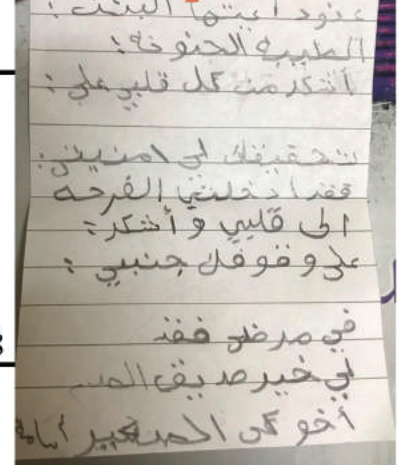 عنود أيتها البنت :
الطيبه الحنونه :
أشكر من كل قلبي على :
تحقيقك لي امنيتي :
فقد ادخلتي الفرحه
الى قلبي وأشكر :
على وقوفك جنبي :
في مرضي فقد
لي خير صديق
أخوكي الصغير أسامة